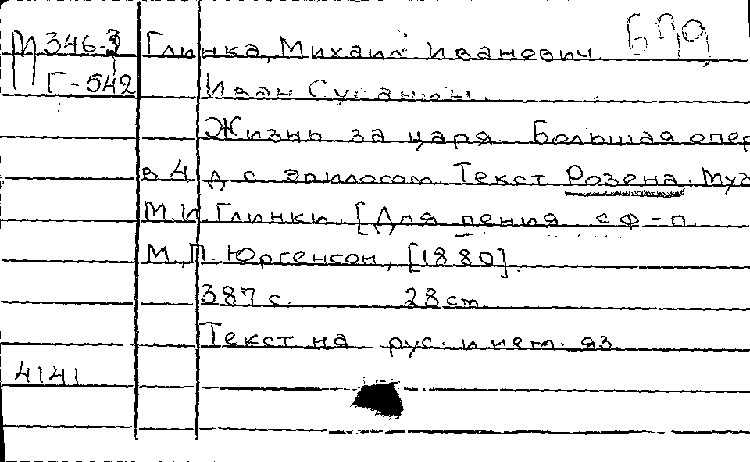 М 346-3 Глинка, Михаил Иванович
Г-542 Иван Сусанин.
Жизнь за царя. Большая опер
в 4 д. с эпилогом. Текст Розена. Муз
М. И. Глинки. [Для пения с ф-п.
М., П. Юргенсон, [1880].
387 с. 28 cm.
Текст на рус. и нем. яз.
4141